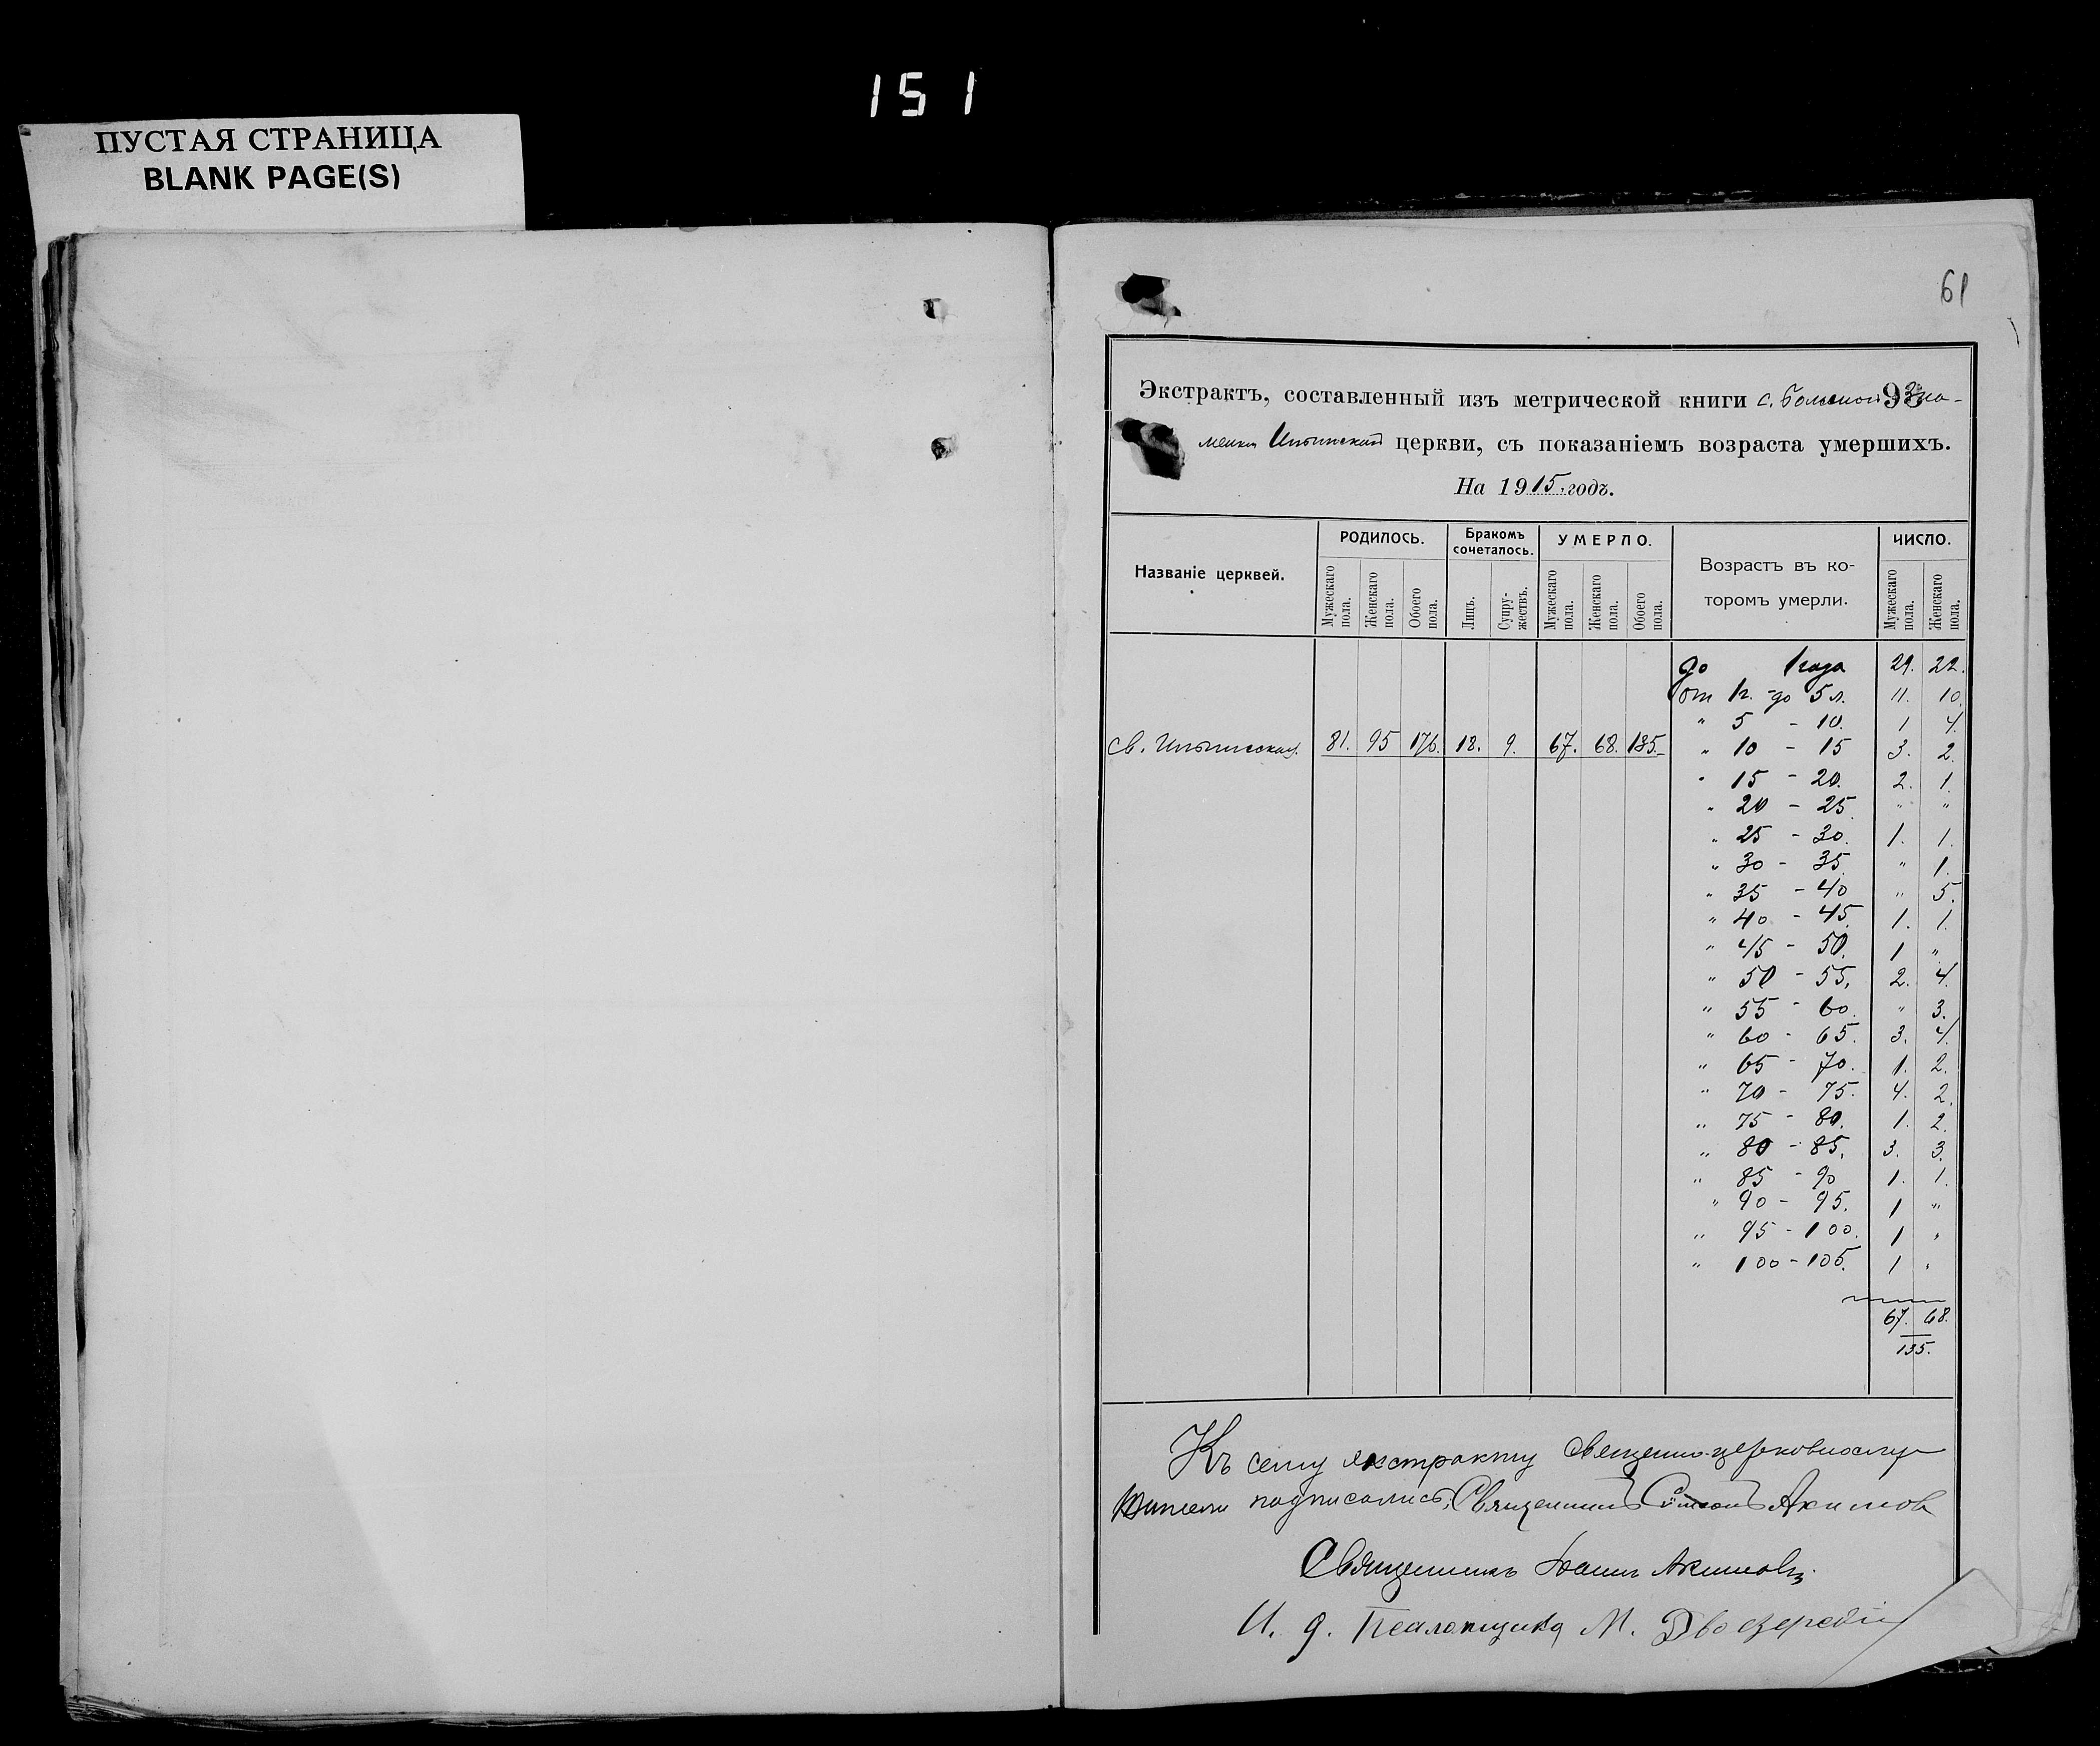 151
ПУСТАЯ СТРАНИЦА
BLANK PAGE(S)
61
93
Экстрактъ, составленный изъ метрической книги с. Большой Зна-
менки Ильинской церкви, съ показаніемъ возраста умершихъ.
На 1915 годъ.
Названіе церквей.
РОДИЛОСЬ.
Мужескаго пола.
Женскаго пола.
Обоего пола.
Бракомъ сочеталось.
Лицъ.
Супру-жествъ.
УМЕРЛО.
Мужескаго пола.
Женскаго пола.
Обоего пола.
Возрастъ въ ко-
торомъ умерли.
ЧИСЛО.
Мужескаго пола.
Женскаго пола.
св. Ильинская. 81. 95 176. 18. 9. 67. 68. 135.
до 1 года 29. 22.
от 1 г. до 5 л. 11. 10.
" 5 - 10. 1 4.
" 10 - 15 3. 2.
" 15 - 20. 2. 1.
" 20 - 25. " "
" 25 - 30. 1. 1.
" 30 - 35. " 1.
" 35 - 40 " 5.
" 40 - 45. 1. 1.
" 45 - 50. 1 "
" 50 - 55. 2. 4.
" 55 - 60. " 3.
" 60 - 65. 3. 4.
" 65 - 70. 1. 2.
" 70 - 75. 4. 2.
" 75 - 80. 1. 2.
" 80 - 85. 3. 3.
" 85 - 90 1. 1.
" 90 - 95. 1 "
" 95 - 100. 1 "
" 100 - 105. 1 "
67. 68.
135.
Къ сему экстракту священно-церковнослу
жители подписались: Священникъ Симеонъ Акимов
Священникъ Іоаннъ Акимовъ
И. д. Псаломщика М.